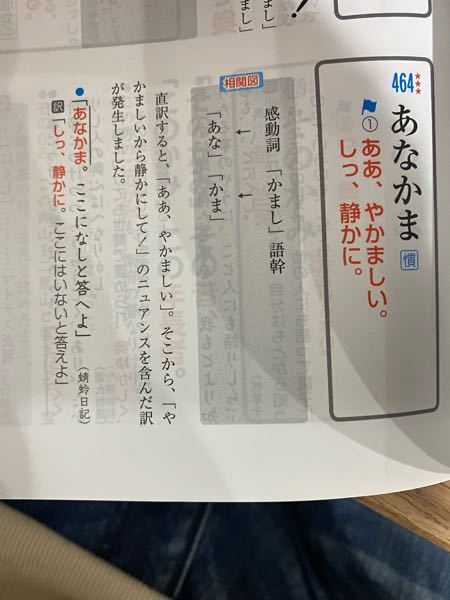 まし」
464***
あなかま 慣
① ああ、やかましい。
しっ、静かに。
相関図
感動詞 「かまし」語幹
↓ ↓
「あな」「かま」
直訳すると、「ああ、やかましい」。そこから、「や
かましいから静かにして！」のニュアンスを含んだ訳
が発生しました。
●「あなかま。ここになしと答へよ」（蜻蛉日記）
訳「しっ、静かに。ここにはいないと答えよ」